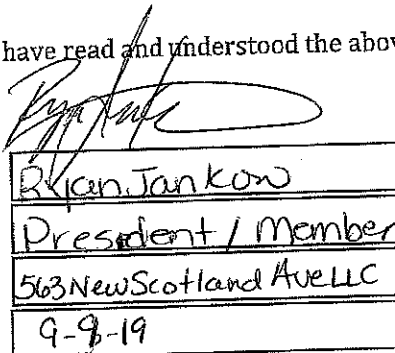 have read and understood the abov
Ryan Jankow
President / Member
563 New Scotland Ave LLC
9-9-19